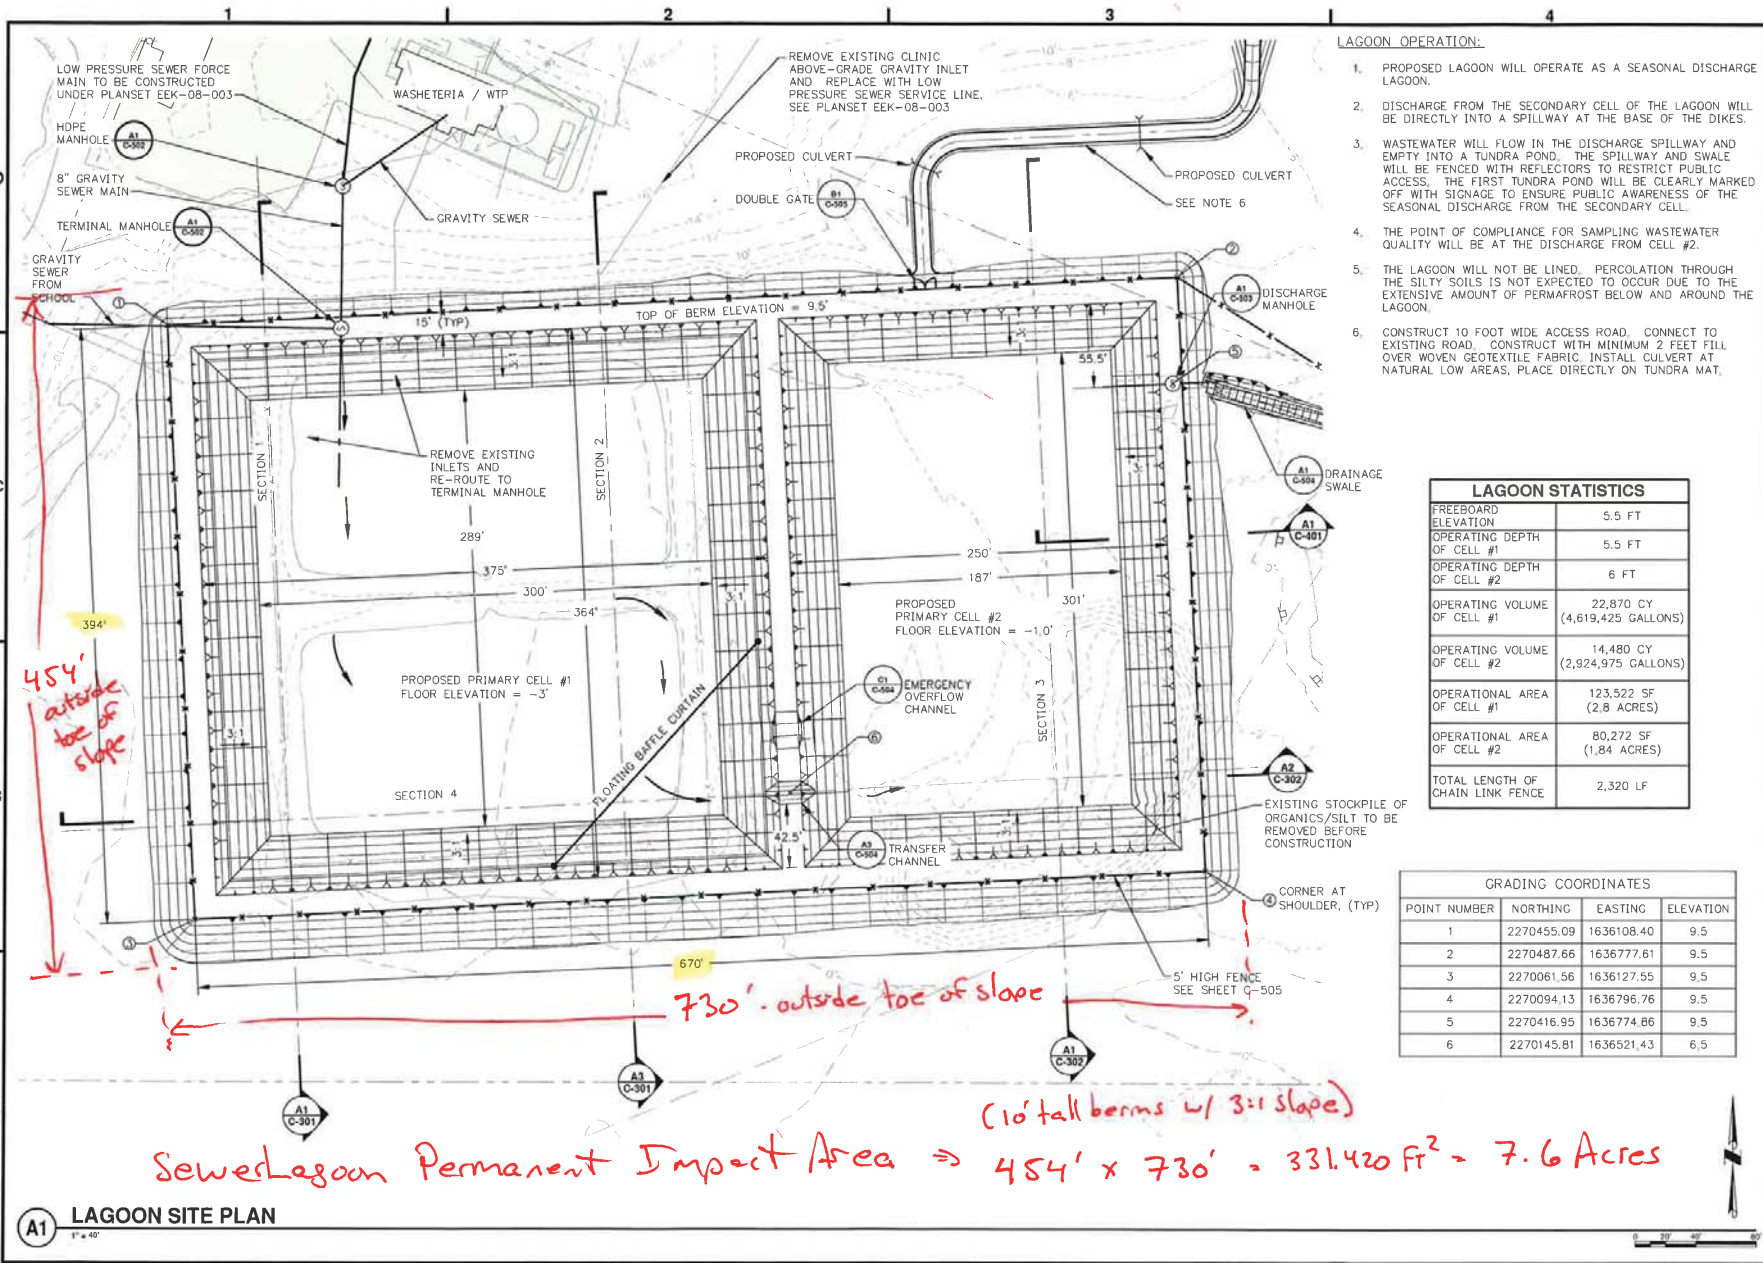 1
2
3
4
LOW PRESSURE SEWER FORCE
MAIN TO BE CONSTRUCTED
UNDER PLANSET EEK-08-003
HDPE
MANHOLE
A1
C-502
8" GRAVITY
SEWER MAIN
TERMINAL MANHOLE
A1
C-502
GRAVITY
SEWER
FROM
SCHOOL
WASHETERIA / WTP
GRAVITY SEWER
REMOVE EXISTING CLINIC
ABOVE-GRADE GRAVITY INLET
AND REPLACE WITH LOW
PRESSURE SEWER SERVICE LINE,
SEE PLANSET EEK-08-003
PROPOSED CULVERT
DOUBLE GATE
B1
C-505
PROPOSED CULVERT
SEE NOTE 6
A1
C-503
DISCHARGE
MANHOLE
1
2
5
S
15' (TYP)
TOP OF BERM ELEVATION = 9.5'
3:1
3:1
55.5'
SECTION 1
SECTION 2
REMOVE EXISTING
INLETS AND
RE-ROUTE TO
TERMINAL MANHOLE
3:1
A1
C-504
DRAINAGE
SWALE
A1
C-401
289'
375'
300'
364'
3:1
250'
187'
301'
394'
PROPOSED
PRIMARY CELL #2
FLOOR ELEVATION = -1.0'
PROPOSED PRIMARY CELL #1
FLOOR ELEVATION = -3'
C1
C-504
EMERGENCY
OVERFLOW
CHANNEL
FLOATING BAFFLE CURTAIN
SECTION 3
3:1
6
A2
C-302
SECTION 4
EXISTING STOCKPILE OF
ORGANICS/SILT TO BE
REMOVED BEFORE
CONSTRUCTION
3:1
42.5'
3:1
A3
C-504
TRANSFER
CHANNEL
4
CORNER AT
SHOULDER, (TYP)
3
670'
5' HIGH FENCE
SEE SHEET C-505
A1
C-301
A3
C-301
A1
C-302
454'
outside
toe of
slope
730' - outside toe of slope
(10' tall berms w/ 3:1 slope)
Sewer Lagoon Permanent Impact Area ⇒ 454' x 730' = 331,420 Ft² = 7.6 Acres
LAGOON OPERATION:
1. PROPOSED LAGOON WILL OPERATE AS A SEASONAL DISCHARGE
LAGOON.
2. DISCHARGE FROM THE SECONDARY CELL OF THE LAGOON WILL
BE DIRECTLY INTO A SPILLWAY AT THE BASE OF THE DIKES.
3. WASTEWATER WILL FLOW IN THE DISCHARGE SPILLWAY AND
EMPTY INTO A TUNDRA POND. THE SPILLWAY AND SWALE
WILL BE FENCED WITH REFLECTORS TO RESTRICT PUBLIC
ACCESS. THE FIRST TUNDRA POND WILL BE CLEARLY MARKED
OFF WITH SIGNAGE TO ENSURE PUBLIC AWARENESS OF THE
SEASONAL DISCHARGE FROM THE SECONDARY CELL.
4. THE POINT OF COMPLIANCE FOR SAMPLING WASTEWATER
QUALITY WILL BE AT THE DISCHARGE FROM CELL #2.
5. THE LAGOON WILL NOT BE LINED. PERCOLATION THROUGH
THE SILTY SOILS IS NOT EXPECTED TO OCCUR DUE TO THE
EXTENSIVE AMOUNT OF PERMAFROST BELOW AND AROUND THE
LAGOON.
6. CONSTRUCT 10 FOOT WIDE ACCESS ROAD. CONNECT TO
EXISTING ROAD. CONSTRUCT WITH MINIMUM 2 FEET FILL
OVER WOVEN GEOTEXTILE FABRIC. INSTALL CULVERT AT
NATURAL LOW AREAS, PLACE DIRECTLY ON TUNDRA MAT.
LAGOON STATISTICS
FREEBOARD
ELEVATION
5.5 FT
OPERATING DEPTH
OF CELL #1
5.5 FT
OPERATING DEPTH
OF CELL #2
6 FT
OPERATING VOLUME
OF CELL #1
22,870 CY
(4,619,425 GALLONS)
OPERATING VOLUME
OF CELL #2
14,480 CY
(2,924,975 GALLONS)
OPERATIONAL AREA
OF CELL #1
123,522 SF
(2.8 ACRES)
OPERATIONAL AREA
OF CELL #2
80,272 SF
(1.84 ACRES)
TOTAL LENGTH OF
CHAIN LINK FENCE
2,320 LF
GRADING COORDINATES
POINT NUMBER NORTHING EASTING ELEVATION
1 2270455.09 1636108.40 9.5
2 2270487.66 1636777.61 9.5
3 2270061.56 1636127.55 9.5
4 2270094.13 1636796.76 9.5
5 2270416.95 1636774.86 9.5
6 2270145.81 1636521.43 6.5
A1
LAGOON SITE PLAN
1" = 40'
0 20' 40' 80'